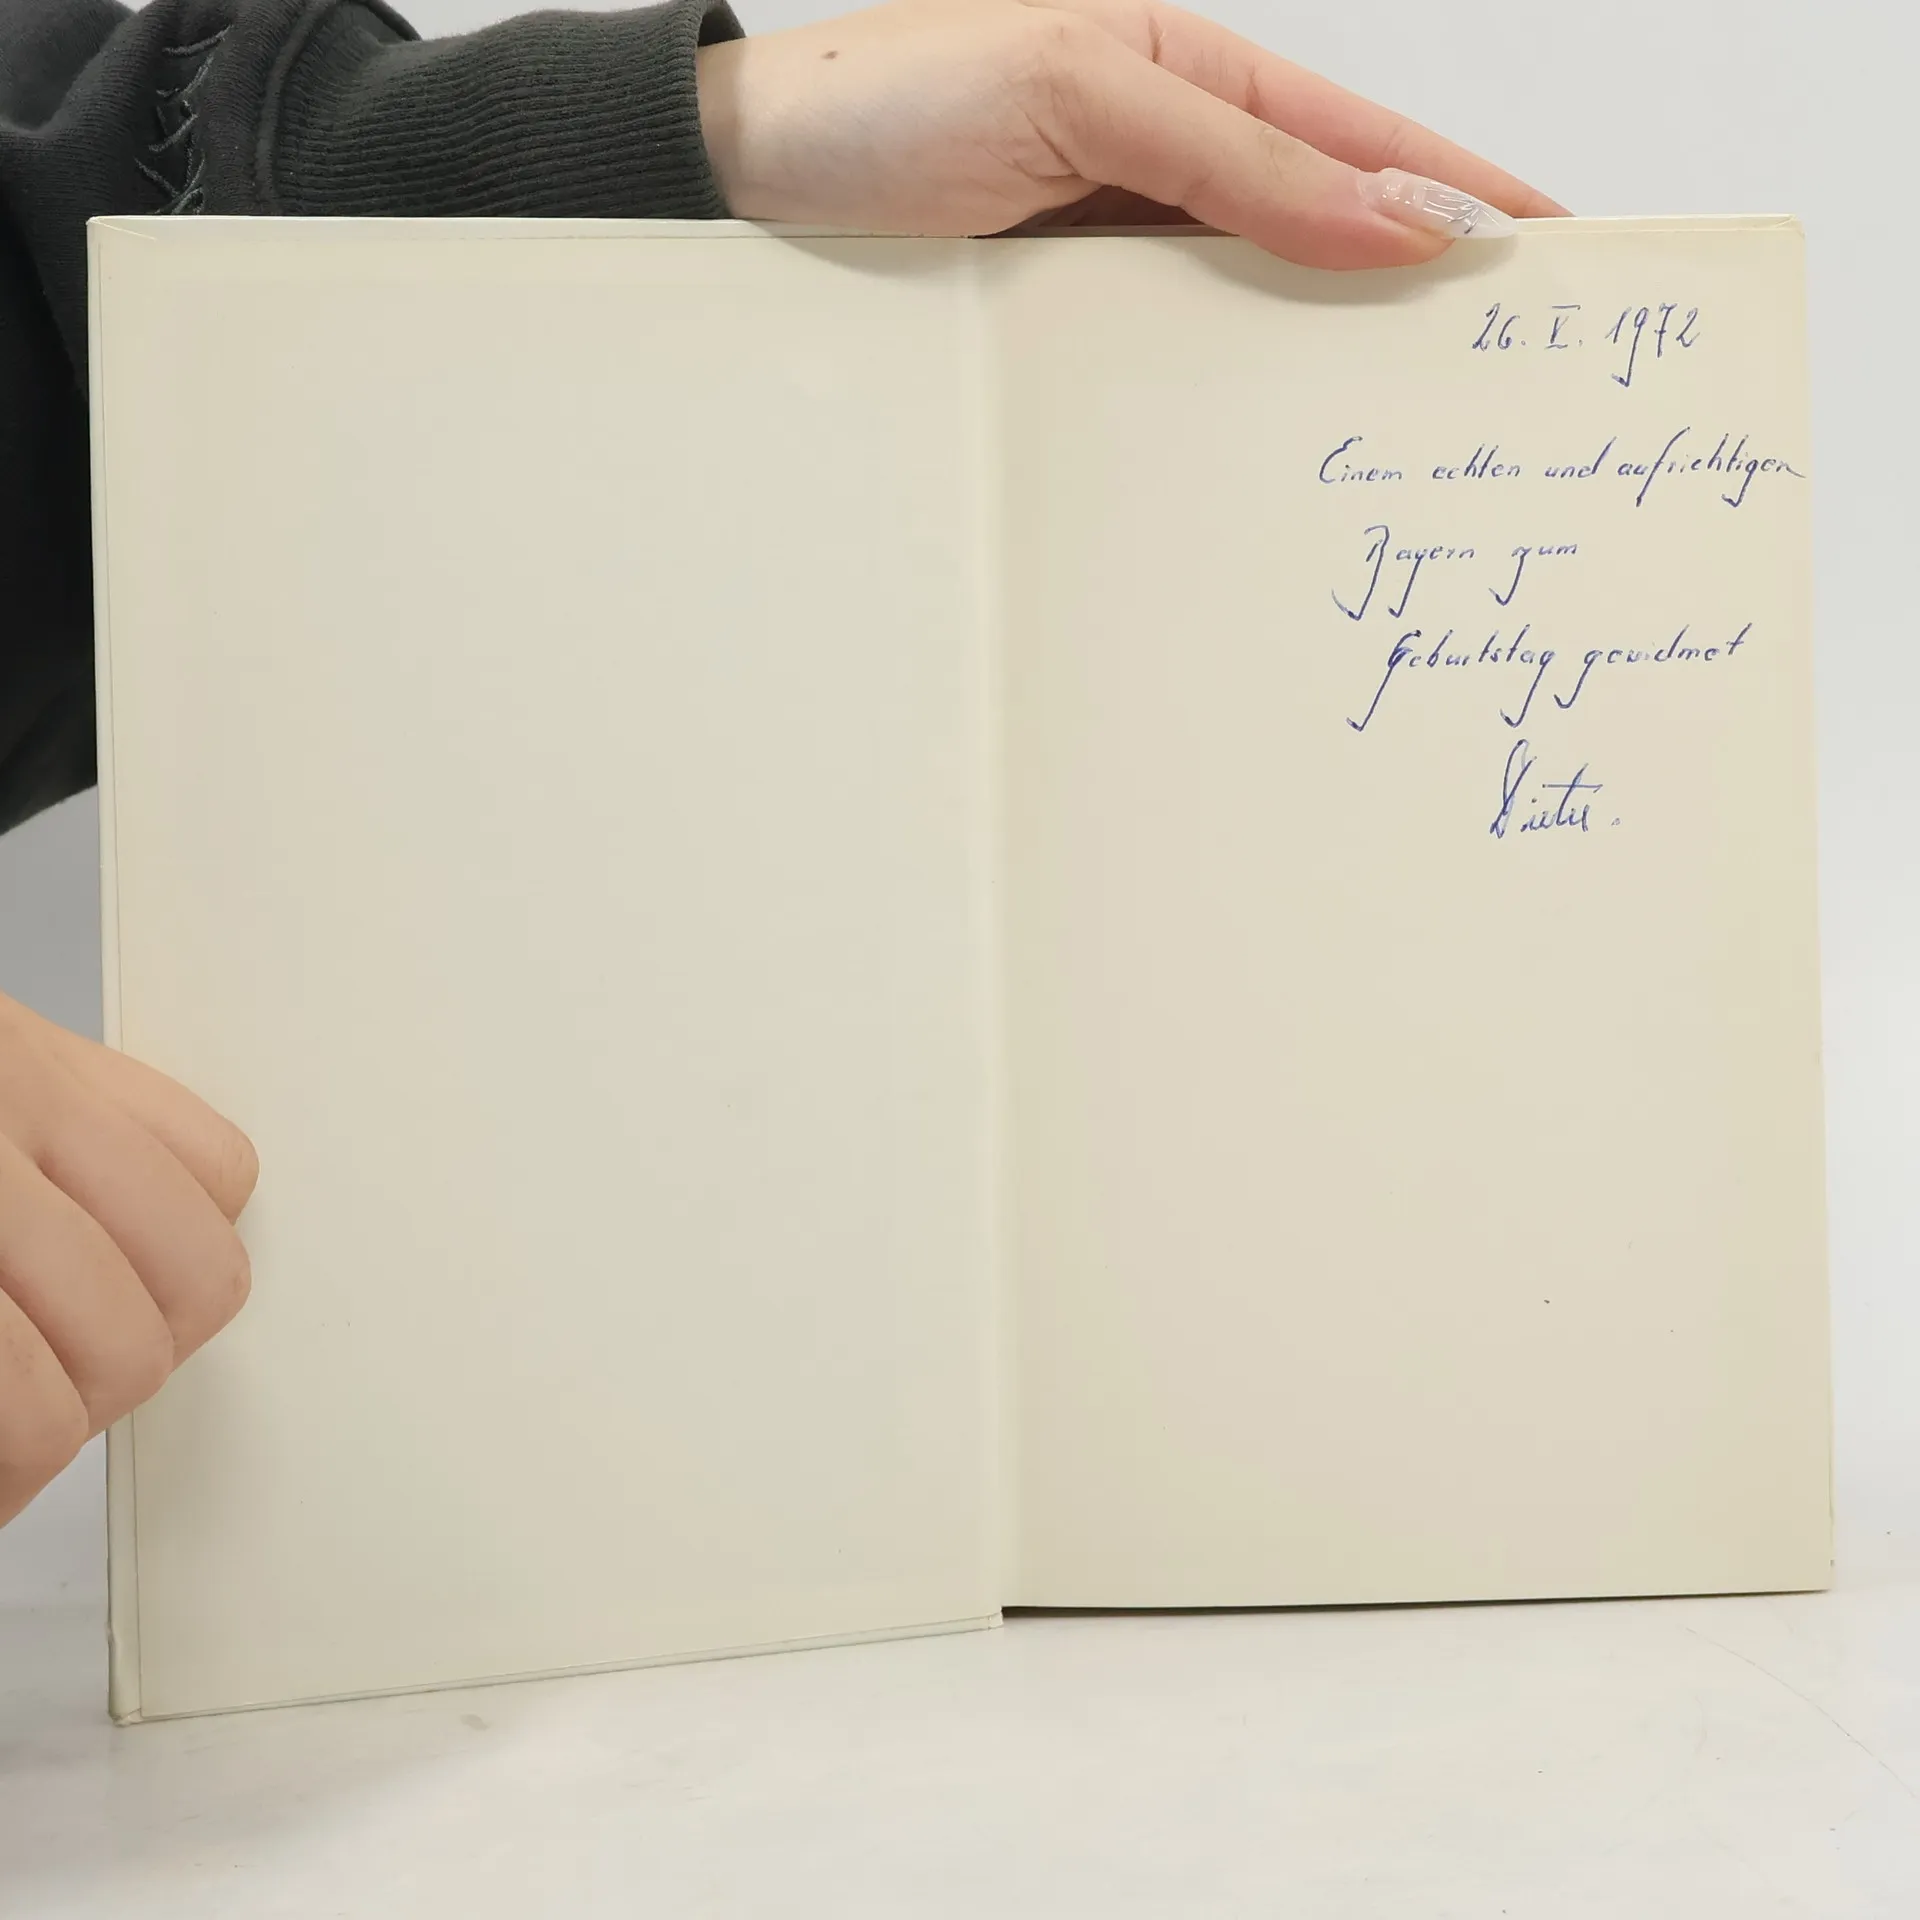 26. V. 1972
Einem echten und aufrichtigen
Bayern zum
Geburtstag gewidmet
Dieter.